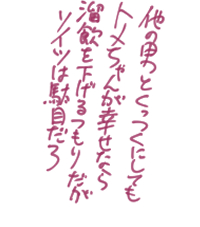 他の男とくっつくにしても
トメちゃんが幸せなら
溜飲を下げるつもりだが
ソイツは駄目だろ